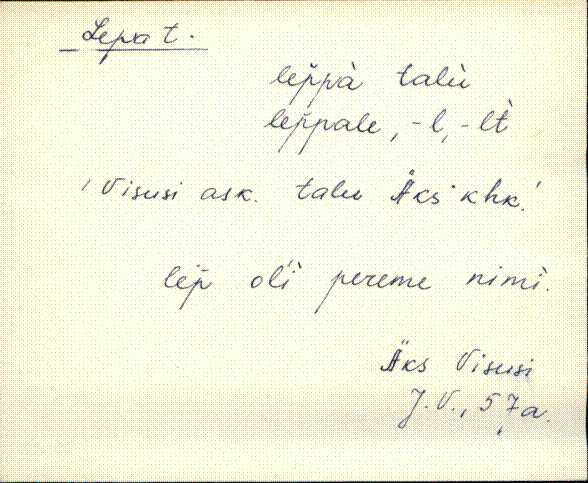 Lepa t.
lep̆pà talù
lep̆pale, -l, -lt̀
! Visusi ask. talu Äks khk!
lep̆ oĺi pereme nimì.
Äks Visusi
J.V., 57a.